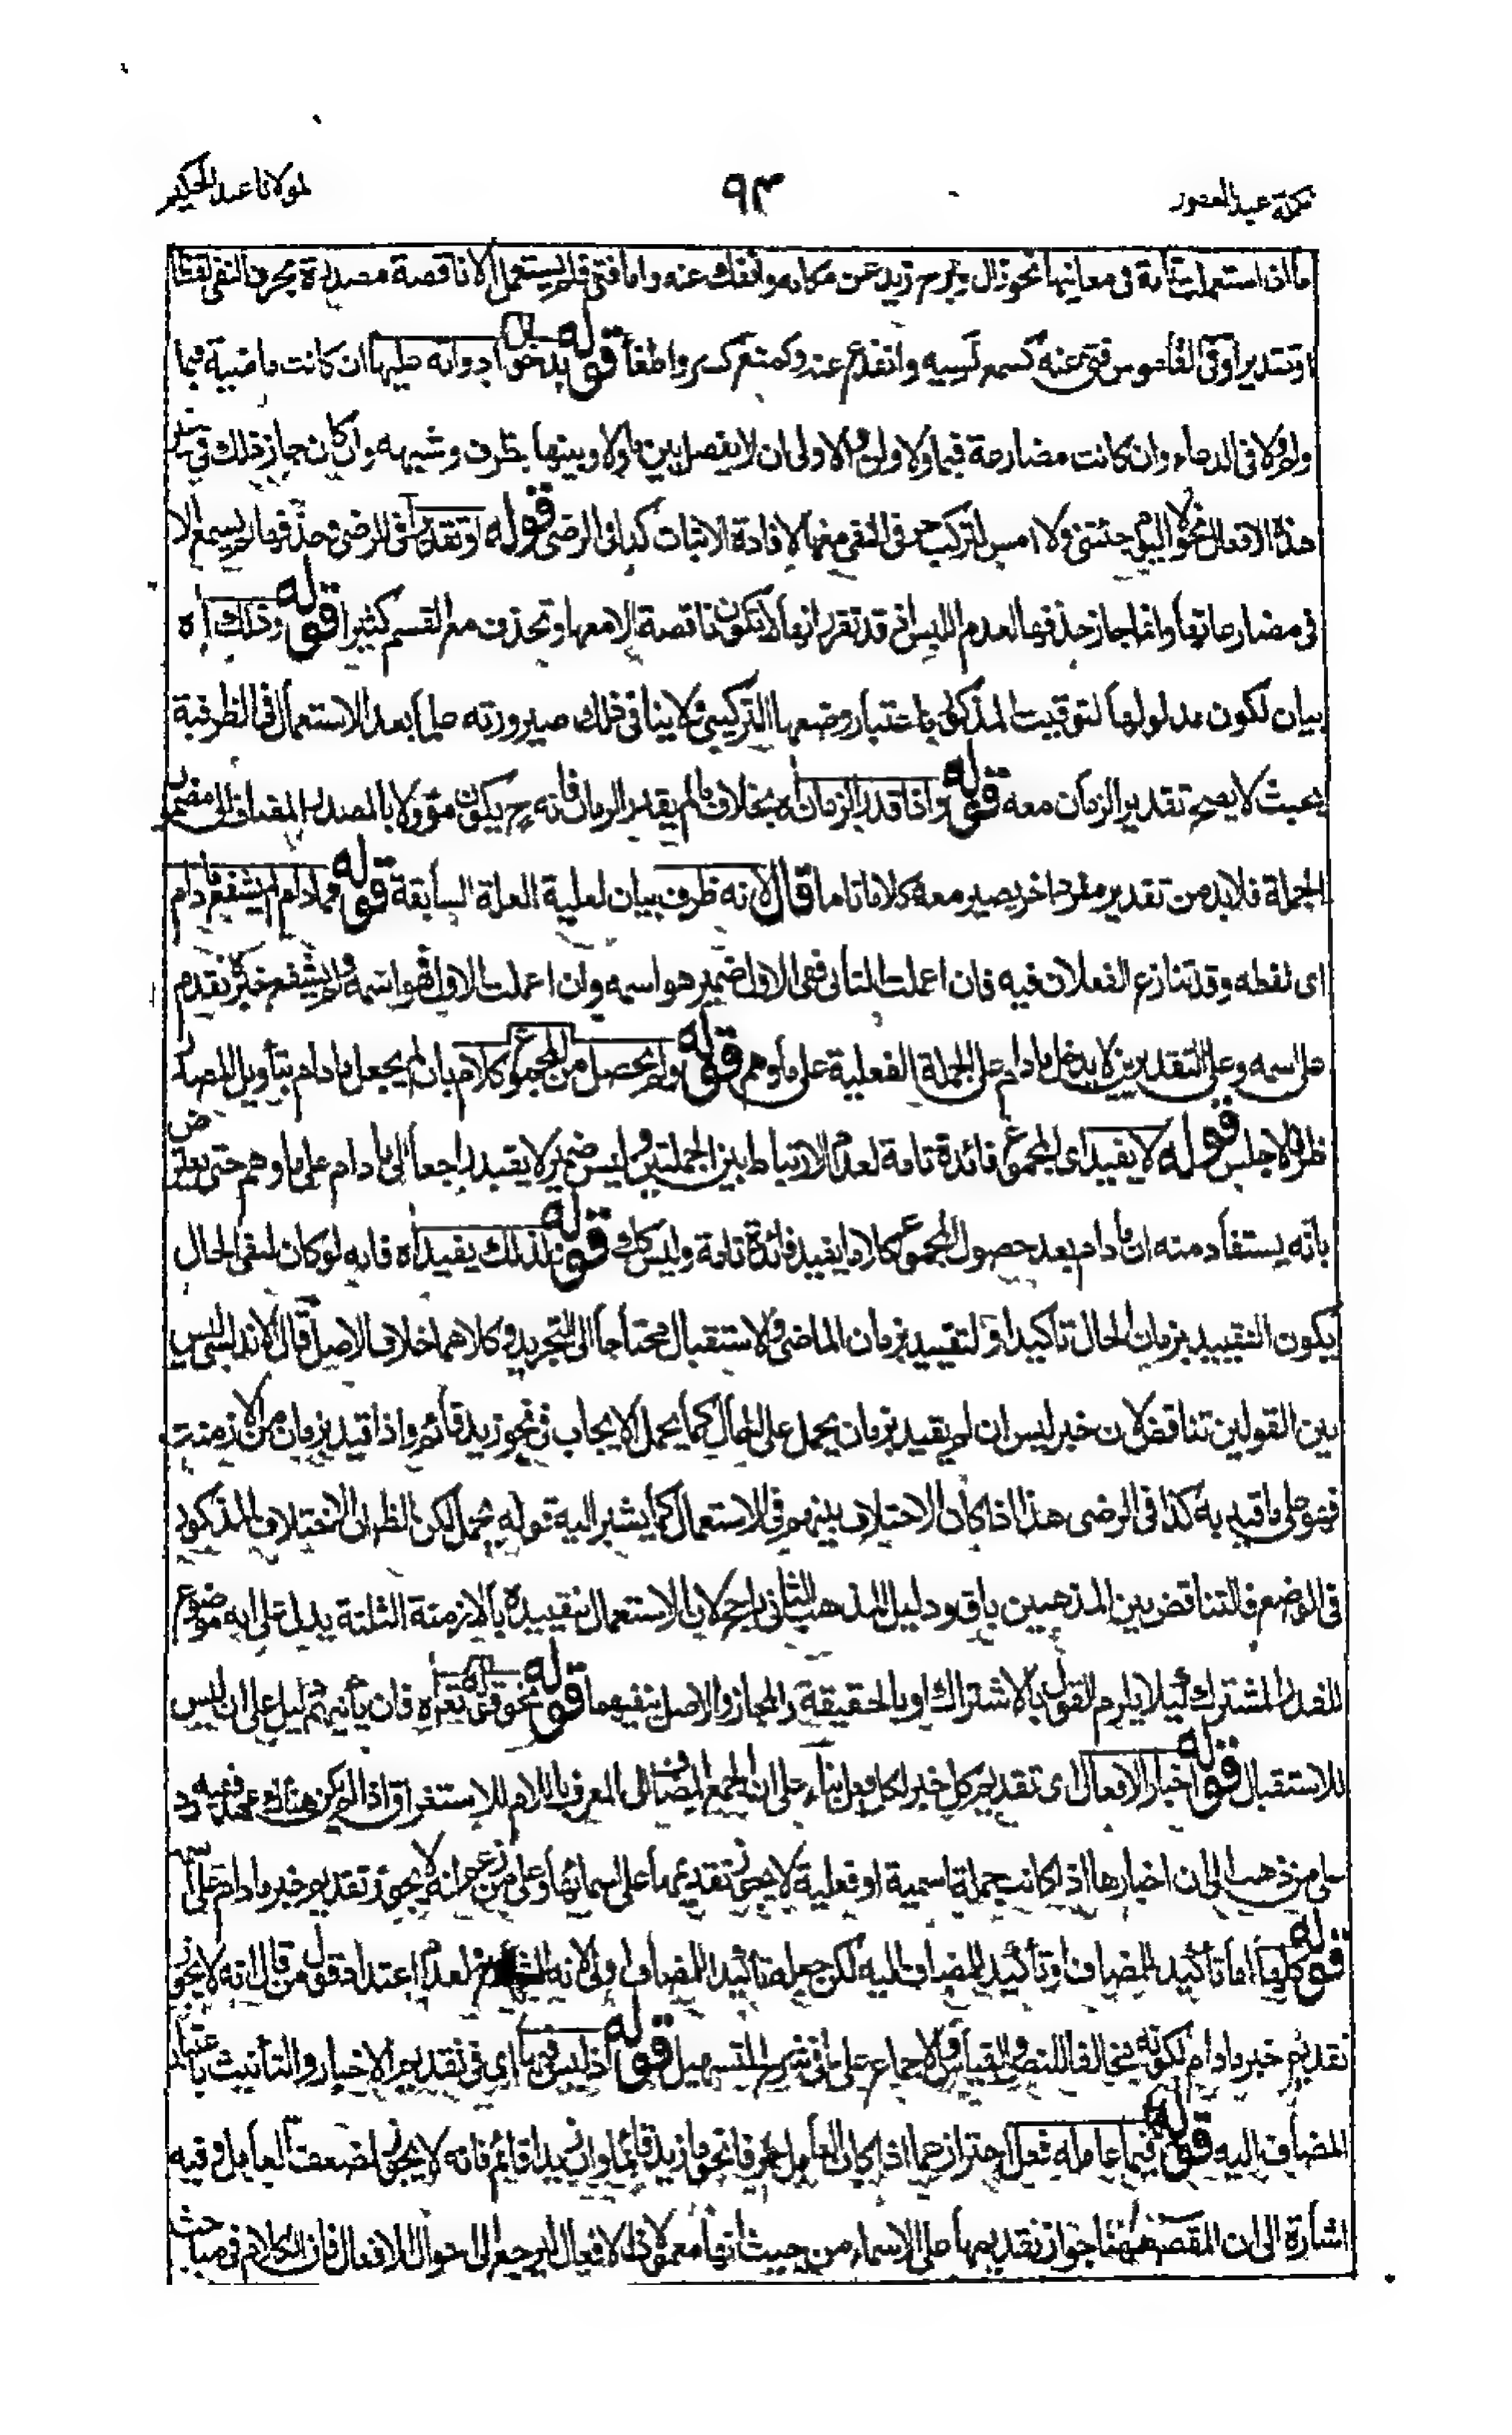 تكملة عبد الغفور ٩٣ لمولانا عبد الحكيم
ما انفك استعملت تامة في معانيها نحو زال وبرح زيد عن مكانه وانفك عنه واما فتئ فلم يستعمل الا ناقصة مصدرة بحرف النفي لفظا
او تقديرا وفي القاموس فتئ عنه كسمع نسيه وانقدع عنه وكمنع كسر واطفأ قوله بدخول ادواته عليها ان كانت ماضية فبما
ولم ولا في الدعاء وان كانت مضارعة فبما ولا ولن والاولى ان لا يفصل بين ما ولا وبينها بظرف وشبهه وان كان جاز ذلك في غير
هذه الافعال نحو لا اليوم جئتني ولا امس لتركيب حرف النفي معها لافادة الاثبات كذا في الرضي قوله او تقديرا في الرضي وحذفها لم يسمع الا
في مضارعاتها وانما جاز حذفها لعدم اللبس اذ قد تقرر انها لا تكون ناقصة الا معها وتحذف مع القسم كثيرا قوله وذلك اه
بيان لكون مدلولها لتوقيت المذكور باعتبار وضعها التركيبي ولا ينافي ذلك صيرورته علما بعد الاستعمال في الظرفية
بحيث لا يصح تقدير الزمان معه قوله واذا قدر الزمان اه بخلاف ما لم يقدر الزمان فانه ح يكون مؤولا بالمصدر المضاف الى مضمون
الجملة فلابد من تقدير مفرد اخر يصير معه كلاما تاما قال لانه ظرف بيان لعلية العلة السابقة قوله وما دام لم يشفع ما دام
اى لفظه وقد تنازع الفعلان فيه فان اعملت الثاني ففي الاول ضمير هو اسمه وان اعملت الاول فهو اسمه ولم يشفع خبره تقدم
على اسمه وعلى التقديرين لا يدخل ما دام على الجملة الفعلية على ما وهم قوله ولم يحصل من المجموع كلام بان لم يجعل ما دام بتأويل المصدر
ظرفا لاجلس قوله لا يفيد اى المجموع فائدة تامة لعدم الارتباط بين الجملتين وليس ضمير لا يفيد راجعا الى ما دام على ما وهم حتى يعترض
بانه يستفاد منه ان ما دام بعد حصول المجموع كلاما يفيد فائدة تامة وليس كك قوله فلذلك يفيد اه فانه لو كان لنفي الحال
يكون التقييد بزمان الحال تاكيدا والتقييد بزمان الماضي والاستقبال محتاجا الى التجريد وكلاهما خلاف الاصل قال الاندلسي ليس
بين القولين تناقض لان خبر ليس ان لم يقيد بزمان يحمل على الحال كما يحمل الايجاب في نحو زيد قائم واذا قيد بزمان من الازمنة
فهو على ما قيد به كذا في الرضي هذا اذا كان الاختلاف بينهم في الاستعمال كما يشير اليه قوله يحمل لكن الظ ان الاختلاف المذكور
في الوضع فالتناقض بين المذهبين باق ودليل المذهب الثاني راجح لان الاستعمال بتقييده بالازمنة الثلثة يدل على انه موضوع
للقدر المشترك لئلا يلزم القول بالاشتراك او بالحقيقة والمجاز والاصل ينفيهما قوله نحو قوله تع اه فان يأتيهم دليل على ان ليس
للاستقبال قوله اخبار الافعال اى تقديم كل خبر لكل فعل بناء على ان الجمع المضاف الى المعرف باللام للاستغراق اذا لم يكن هناك عهد ففيه رد
على من ذهب الى ان اخبارها اذا كانت جملة اسمية او فعلية لا يجوز تقديمها على اسمائها وعلى من زعم انه لا يجوز تقديم خبر ما دام على اسمه
قوله كلها اما تأكيد المضاف او تأكيد المضاف اليه لكن جعله تأكيدا للمضاف اولى لانه لعدم اعتداد قول من قال انه لا يجوز
تقديم خبر ما دام لكونه مخالفا للنص والقياس والاجماع على ما في شرح التسهيل قوله اذ ليس فيها اى في تقديم الاخبار والتأنيث باعتبار
المضاف اليه قوله فيما عامله فعل احتراز عما اذا كان العامل حرفا نحو ما زيد قائما وان زيدا قائم فانه لا يجوز لضعف العامل وفيه
اشارة الى ان المقصود ههنا جواز تقديمها على الاسماء من حيث انها معمولة لافعال ليرجع الى احوال الافعال فان الكلام في مباحث